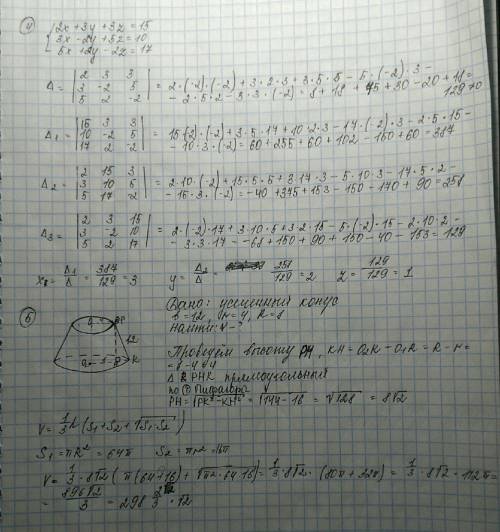 4
2x + 3y + 3z = 15
3x - 2y + 5z = 10
5x + 2y - 2z = 17
Δ = | 2 3 3 | 3 -2 5 | 5 2 -2 | = 2·(-2)·(-2) + 3·2·3 + 3·5·5 - 5·(-2)·3 -
- 2·5·2 - 3·3·(-2) = 8 + 18 + 75 + 30 - 20 + 18 =
129 ≠ 0
Δ1 = | 15 3 3 | 10 -2 5 | 17 2 -2 | = 15(-2)·(-2) + 3·5·17 + 10·2·3 - 17·(-2)·3 - 2·5·15 -
- 10·3·(-2) = 60 + 255 + 60 + 102 - 150 + 60 = 387
Δ2 = | 2 15 3 | 3 10 5 | 5 17 -2 | = 2·10·(-2) + 15·5·5 + 3·17·3 - 5·10·3 - 17·5·2 -
- 15·3·(-2) = -40 + 375 + 153 - 150 - 170 + 90 = 258
Δ3 = | 2 3 15 | 3 -2 10 | 5 2 17 | = 2·(-2)·17 + 3·10·5 + 3·2·15 - 5·(-2)·15 - 2·10·2 -
- 3·3·17 = -68 + 150 + 90 + 150 - 40 - 153 = 129
x = Δ1/Δ = 387/129 = 3 y = Δ2/Δ = 258/129 = 2 z = 129/129 = 1
5
Дано: усечённый конус
l = 12, r = 4, R = 8
Найти: V - ?
12
Проведём высоту PH, KH = O2K - O1P = R - r =
= 8 - 4 = 4
Δ PHK прямоугольный
по Т Пифагора
PH = √PK² - KH² = √144 - 16 = √128 = 8√2
V = 1/3 h (S1 + S2 + √S1·S2)
S1 = πR² = 64π S2 = πr² = 16π
V = 1/3 · 8√2 (π(64 + 16) + √π²·64·16) = 1/3 · 8√2 · (80π + 32π) = 1/3 · 8√2 · 112π =
= 896√2/3 = 298 2/3 · √2